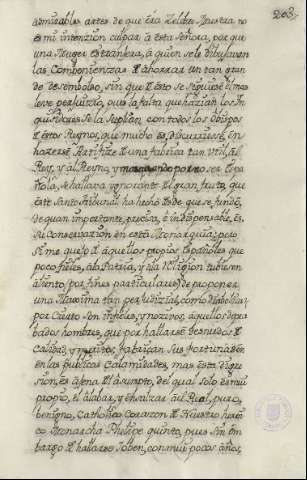 203
admirables artes de que era
no es mi intencion culpar a esta Señora, por que
una Muger Estrangera, a quien se le dibujavan
las Combeniencias de ahorrar un tan gran
de desembolso, sin que de esto se siguiese
leve perjuicio, pues la falta que hazian los In
quisidores se la suplian, con todos los Obispos
de estos Reynos, que mucho es discurriese, en
hazerse Artifize de una fabrica tan util al
Rey, y al Reyno, y por no ser Espa
ñola, se hallava ygnorante del gran fruto, que
este Santo Tribunal ha hecho desde que se fundó,
de quan importante, precisa, e indispensable, es
su Conservazion en esta Monarquia; pero
si me quejo de aquellos propios Españoles que
poco fieles, a la Patria, y a la Religion tubieron
aliento, por fines particulares de proponer
una Maxima tan perjudizial, como diabolica;
por Cierto son infieles, y nozivos, aquellos
hombres, que por hallarse desnudos de
Calidad, y meritos, fabrican sus fortunas
en las publicas Calamidades, mas esta digre
sion, es agena del asumpto, del qual solo es mui
propio, el alabar, y ensalzar al Real, puro,
benigno, Catholico Corazon de Nuestro
Monarcha Phelipe quinto, pues sin em
bargo de hallarse Joben, con mui pocos años,